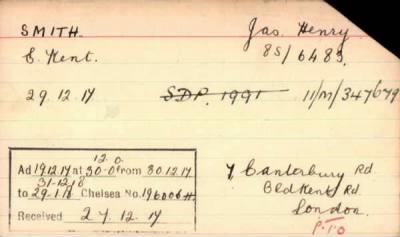 SMITH. Jas. Henry.
S. Kent. 8S/6483.
29.12.17 S.D.P. 1991 11/M/347679
12.0.
Ad 19.12.17 at 30-0 from 30.12.17
31-12-18
to 29.1.18 Chelsea No. 196006 H
Received 27.12.17
7 Canterbury Rd
Old Kent Rd.
London.
P.T.O